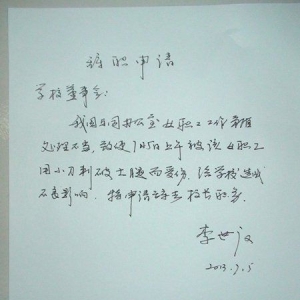 辞职申请
学校董事会:
我因与同办公室女职工工作矛盾
处理不当,致使7月5日上午被该女职工
用小刀刺破大腿而受伤,给学校造成
不良影响。特申请辞去校长职务。
李世
2013.7.5